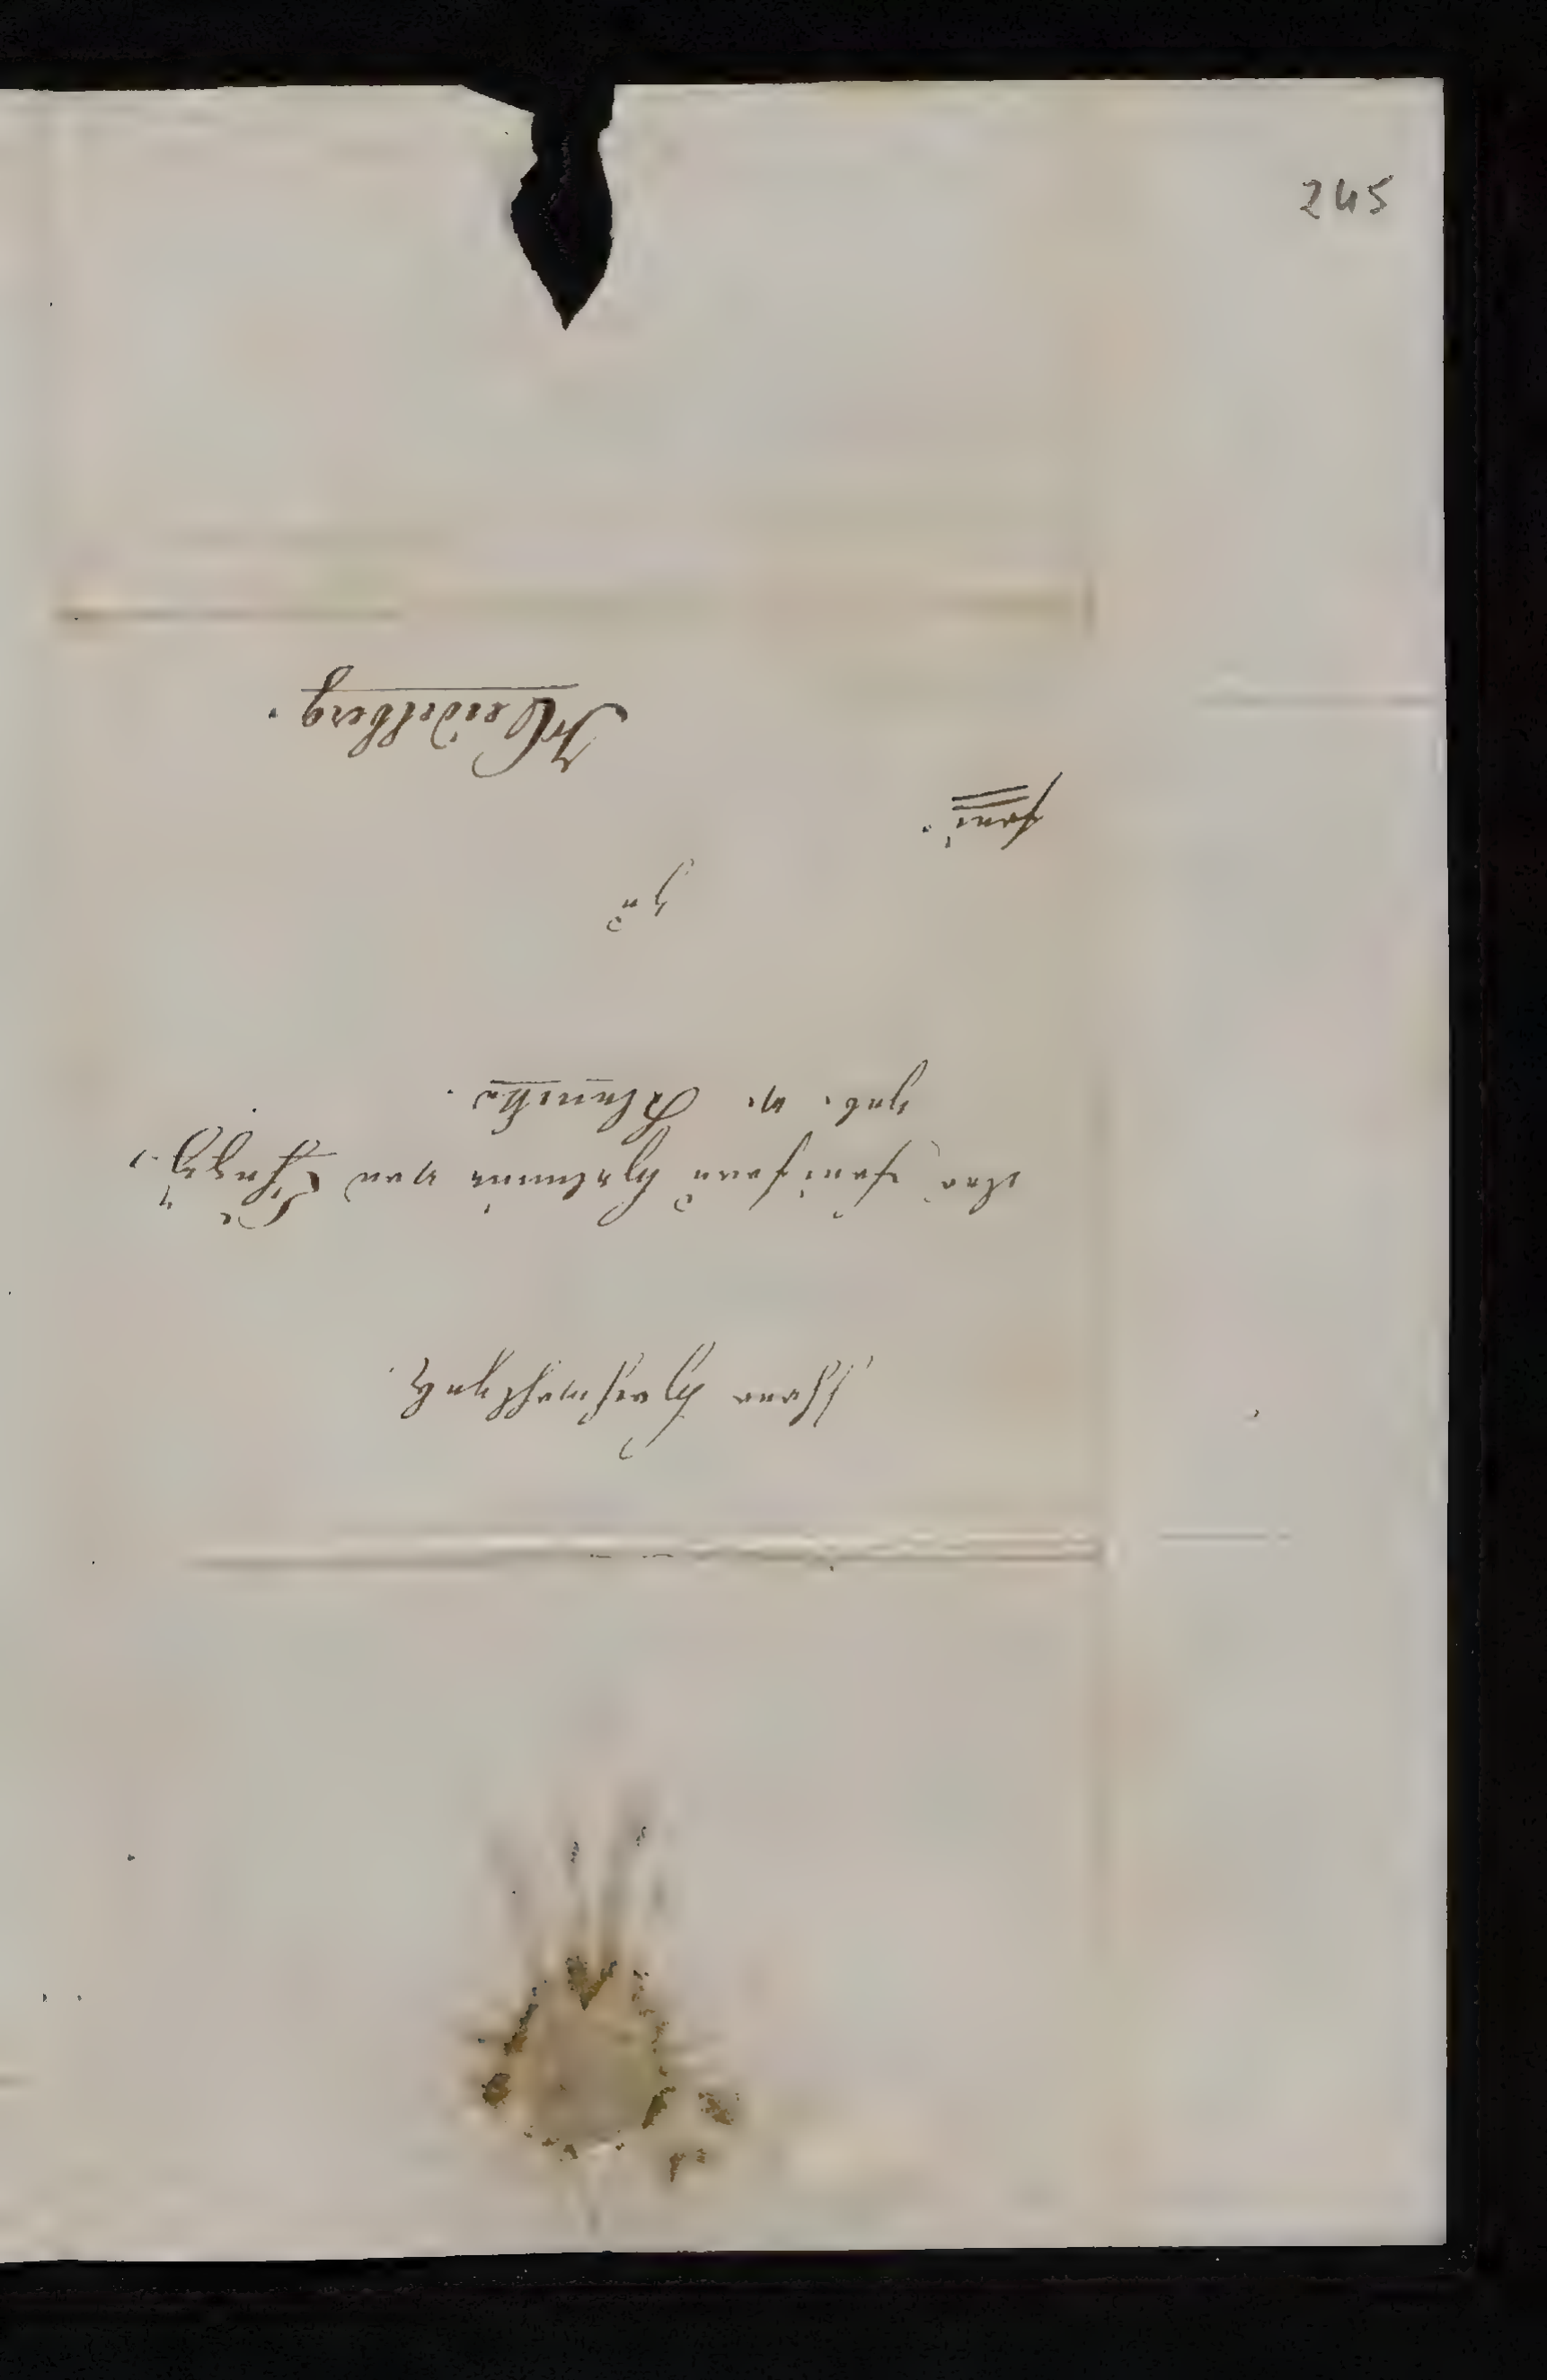 245
Ihrer Hochwohlgeb.
der Freifrau Helmine von Chezÿ,
geb. v. Klencke.
zu
frei.
Heidelberg.